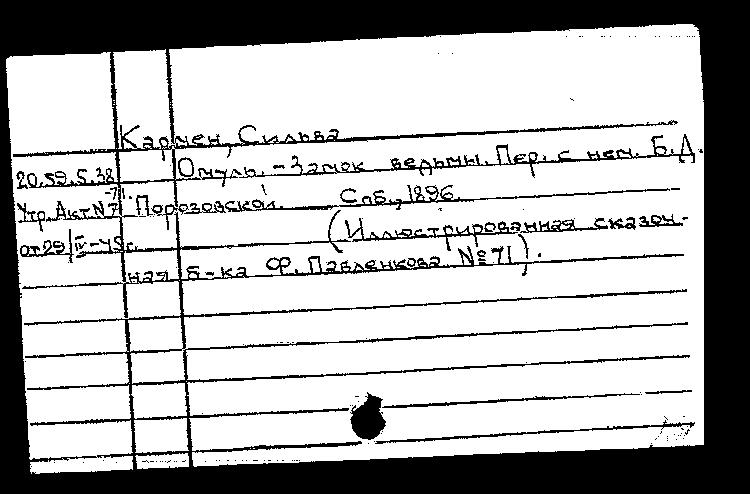 Кармен, Сильва
20.59.5.38
Омуль. - Замок ведьмы. Пер. с нем. Б.Д.
Утр. Акт N 7
Порозовской. Спб., 1896.
от 29/IV-49г.
(Иллюстрированная сказоч-
ная б-ка Ф. Павленкова №71).